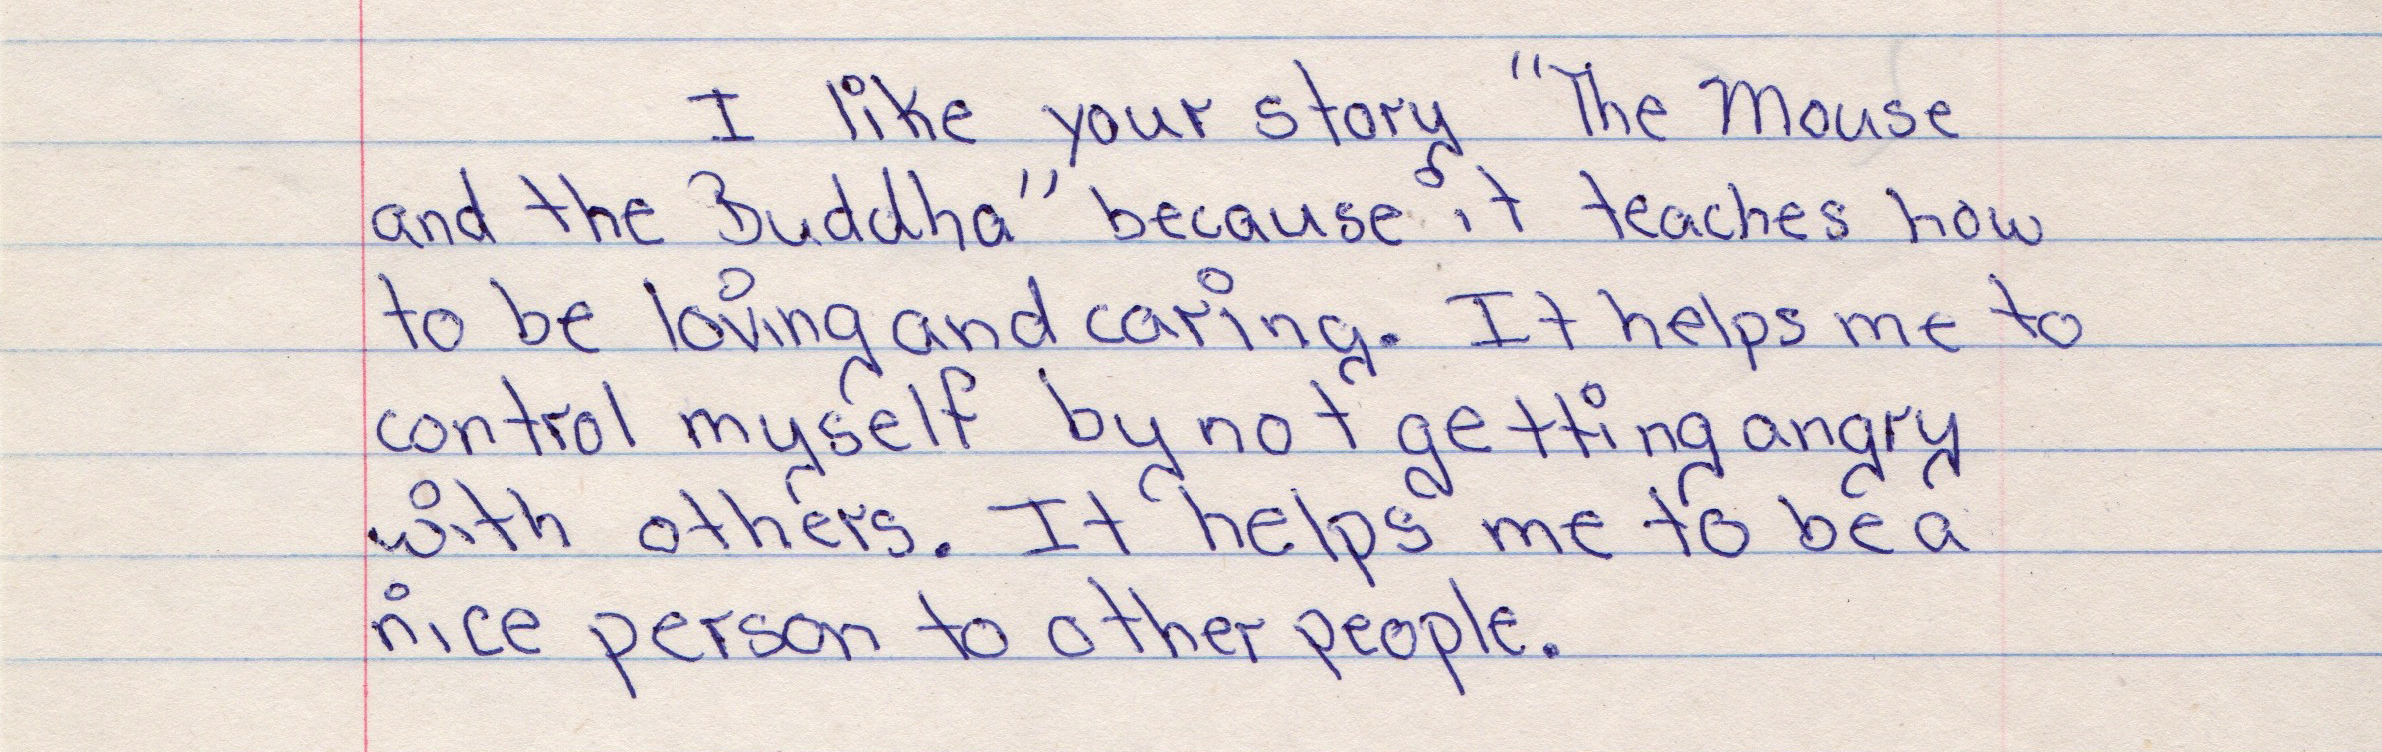 I like your story "The Mouse
and the Buddha" because it teaches how
to be loving and caring. It helps me to
control myself by not getting angry
with others. It helps me to be a
nice person to other people.